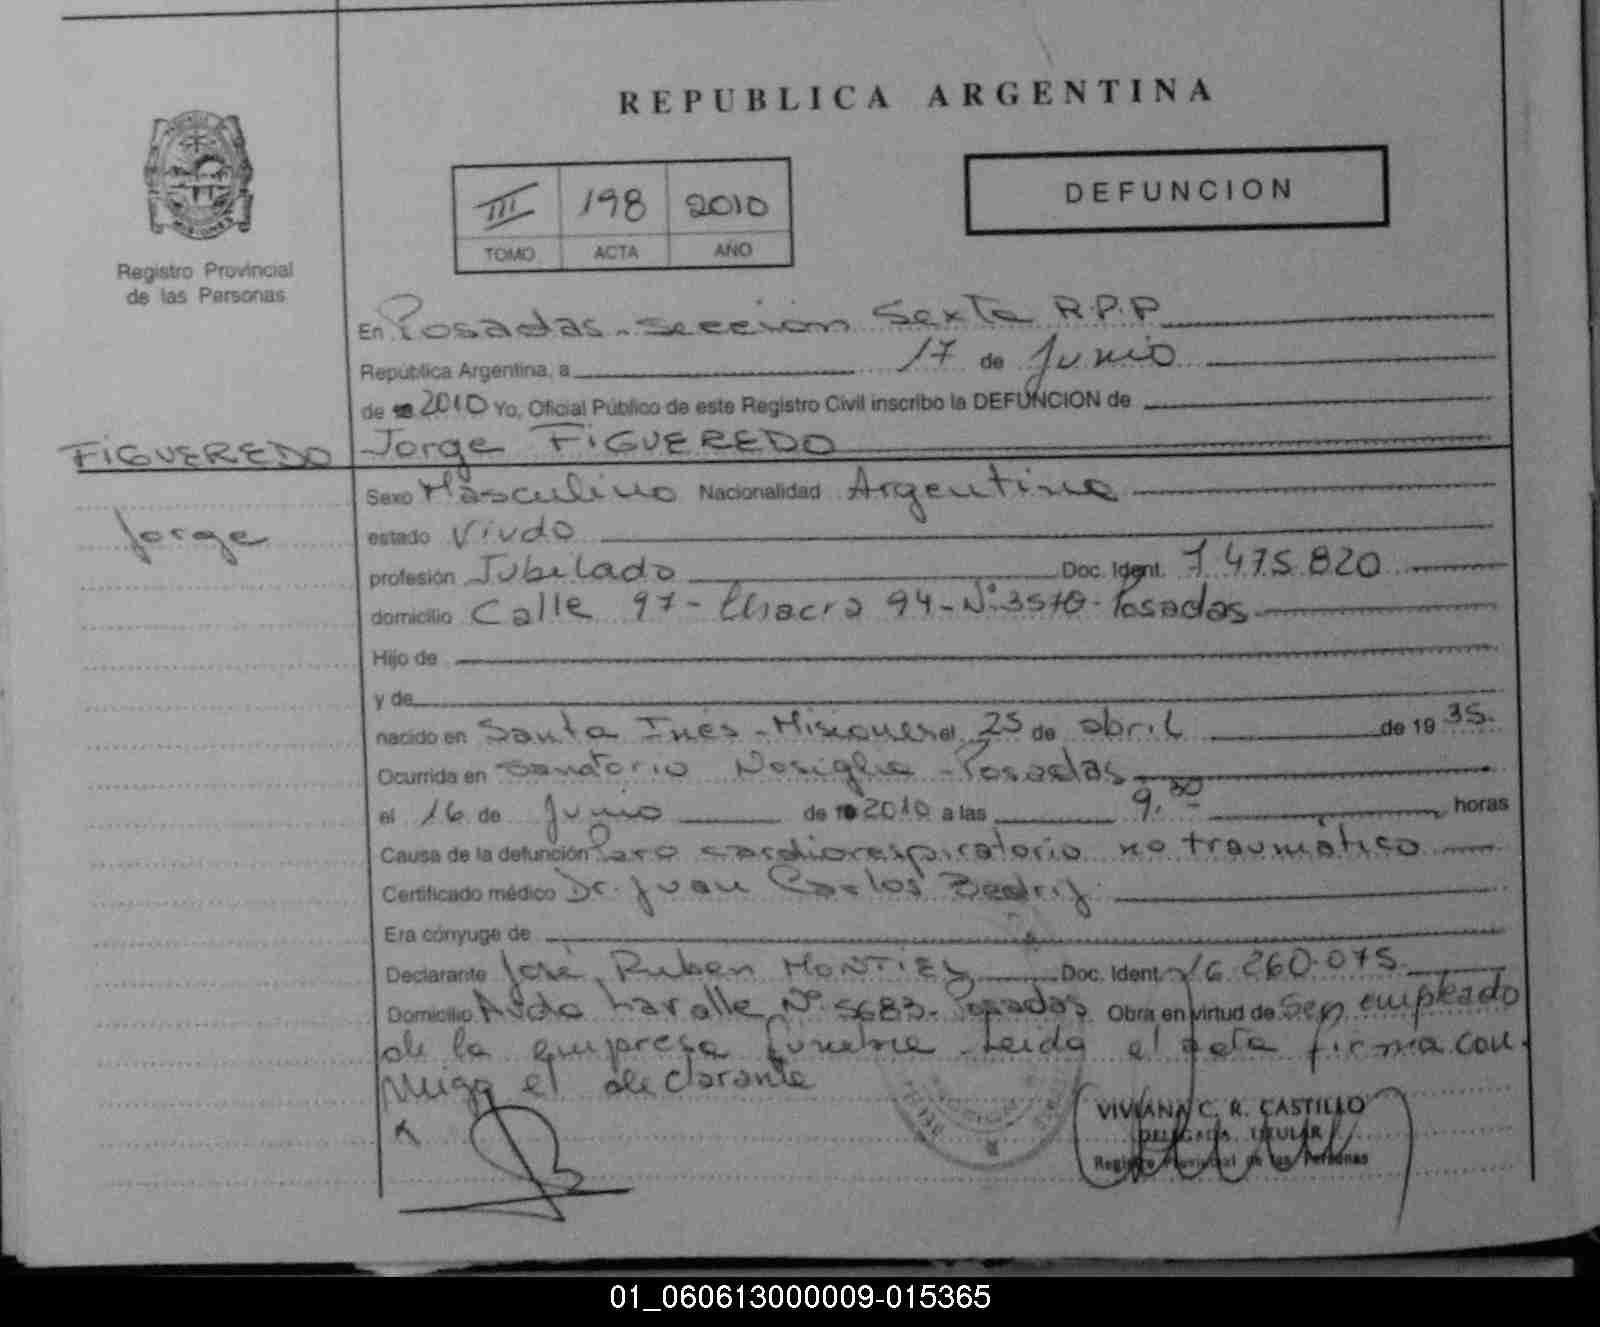 REPUBLICA ARGENTINA
III 198 2010
TOMO ACTA AÑO
DEFUNCION
Registro Provincial
de las Personas
En Posadas - Sección Sexta R.P.P
República Argentina, a 17 de Junio
de 2010 Yo, Oficial Público de este Registro Civil inscribo la DEFUNCION de
FIGUEREDO
Jorge
Jorge FIGUEREDO
Sexo Masculino Nacionalidad Argentina
estado Viudo
profesión Jubilado Doc. Ident. 7.475.820
domicilio Calle 97 - Chacra 94 - Nº 3570 - Posadas
Hijo de
y de
nacido en Santa Inés - Misiones el 25 de abril de 19 35.
Ocurrida en Sanatorio Nosiglia - Posadas
el 16 de Junio de 2010 a las 9,30 horas
Causa de la defunción Paro cardiorespiratorio no traumático
Certificado médico Dr. Juan Carlos
Era cónyuge de
Declarante José Ruben MONTIEL Doc. Ident. 16.260.075
Domicilio Avda Lavalle Nº 5683 - Posadas Obra en virtud de Ser empleado
de la empresa funebre - Leida el acta firma con
migo el declarante
VIVIANA C. R. CASTILLO
DELEGADA TITULAR
Registro Provincial de las Personas
01_060613000009-015365